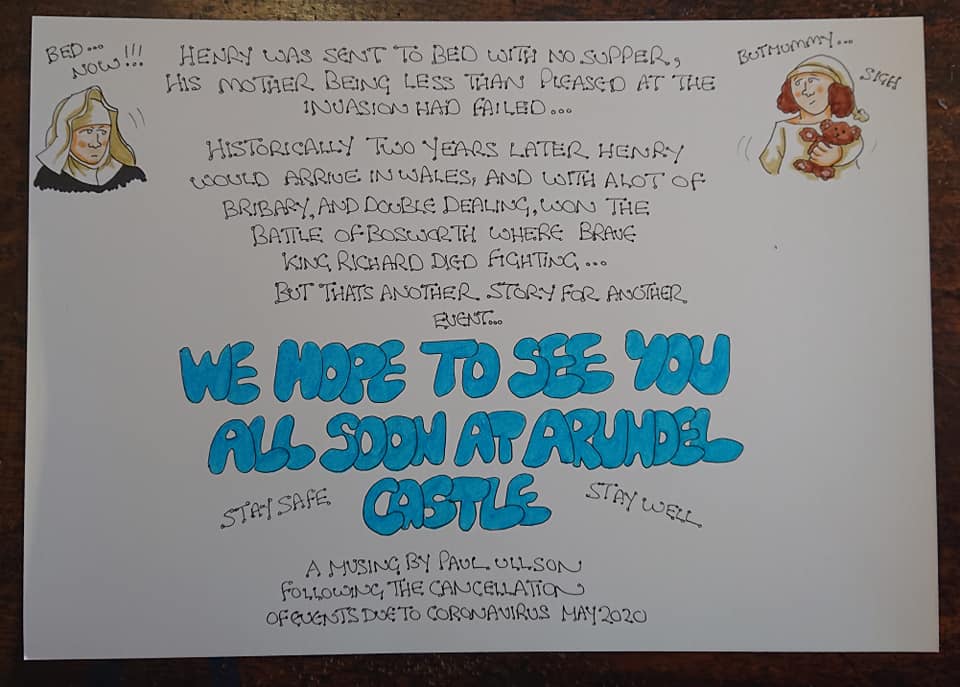 BED...
NOW!!!
HENRY WAS SENT TO BED WITH NO SUPPER,
HIS MOTHER BEING LESS THAN PLEASED AT THE
INVASION HAD FAILED...
BUT MUMMY...
SIGH
HISTORICALLY TWO YEARS LATER HENRY
WOULD ARRIVE IN WALES, AND WITH A LOT OF
BRIBARY, AND DOUBLE DEALING, WON THE
BATTLE OF BOSWORTH WHERE BRAVE
KING RICHARD DIED FIGHTING...
BUT THATS ANOTHER STORY FOR ANOTHER
EVENT...
WE HOPE TO SEE YOU
ALL SOON AT ARUNDEL
CASTLE
STAY SAFE
STAY WELL
A MUSING BY PAUL ULLSON
FOLLOWING THE CANCELLATION
OF EVENTS DUE TO CORONAVIRUS MAY 2020